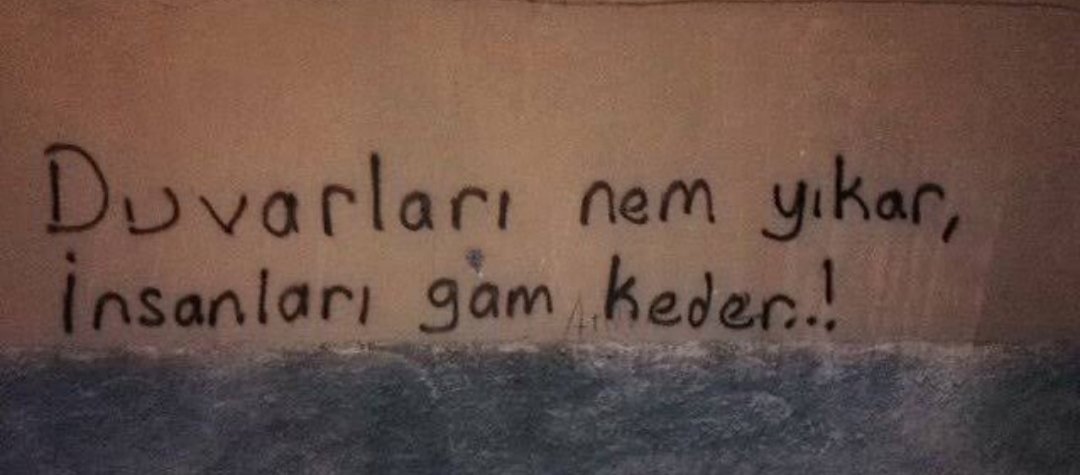 Duvarları nem yıkar,
İnsanları gam keder..!